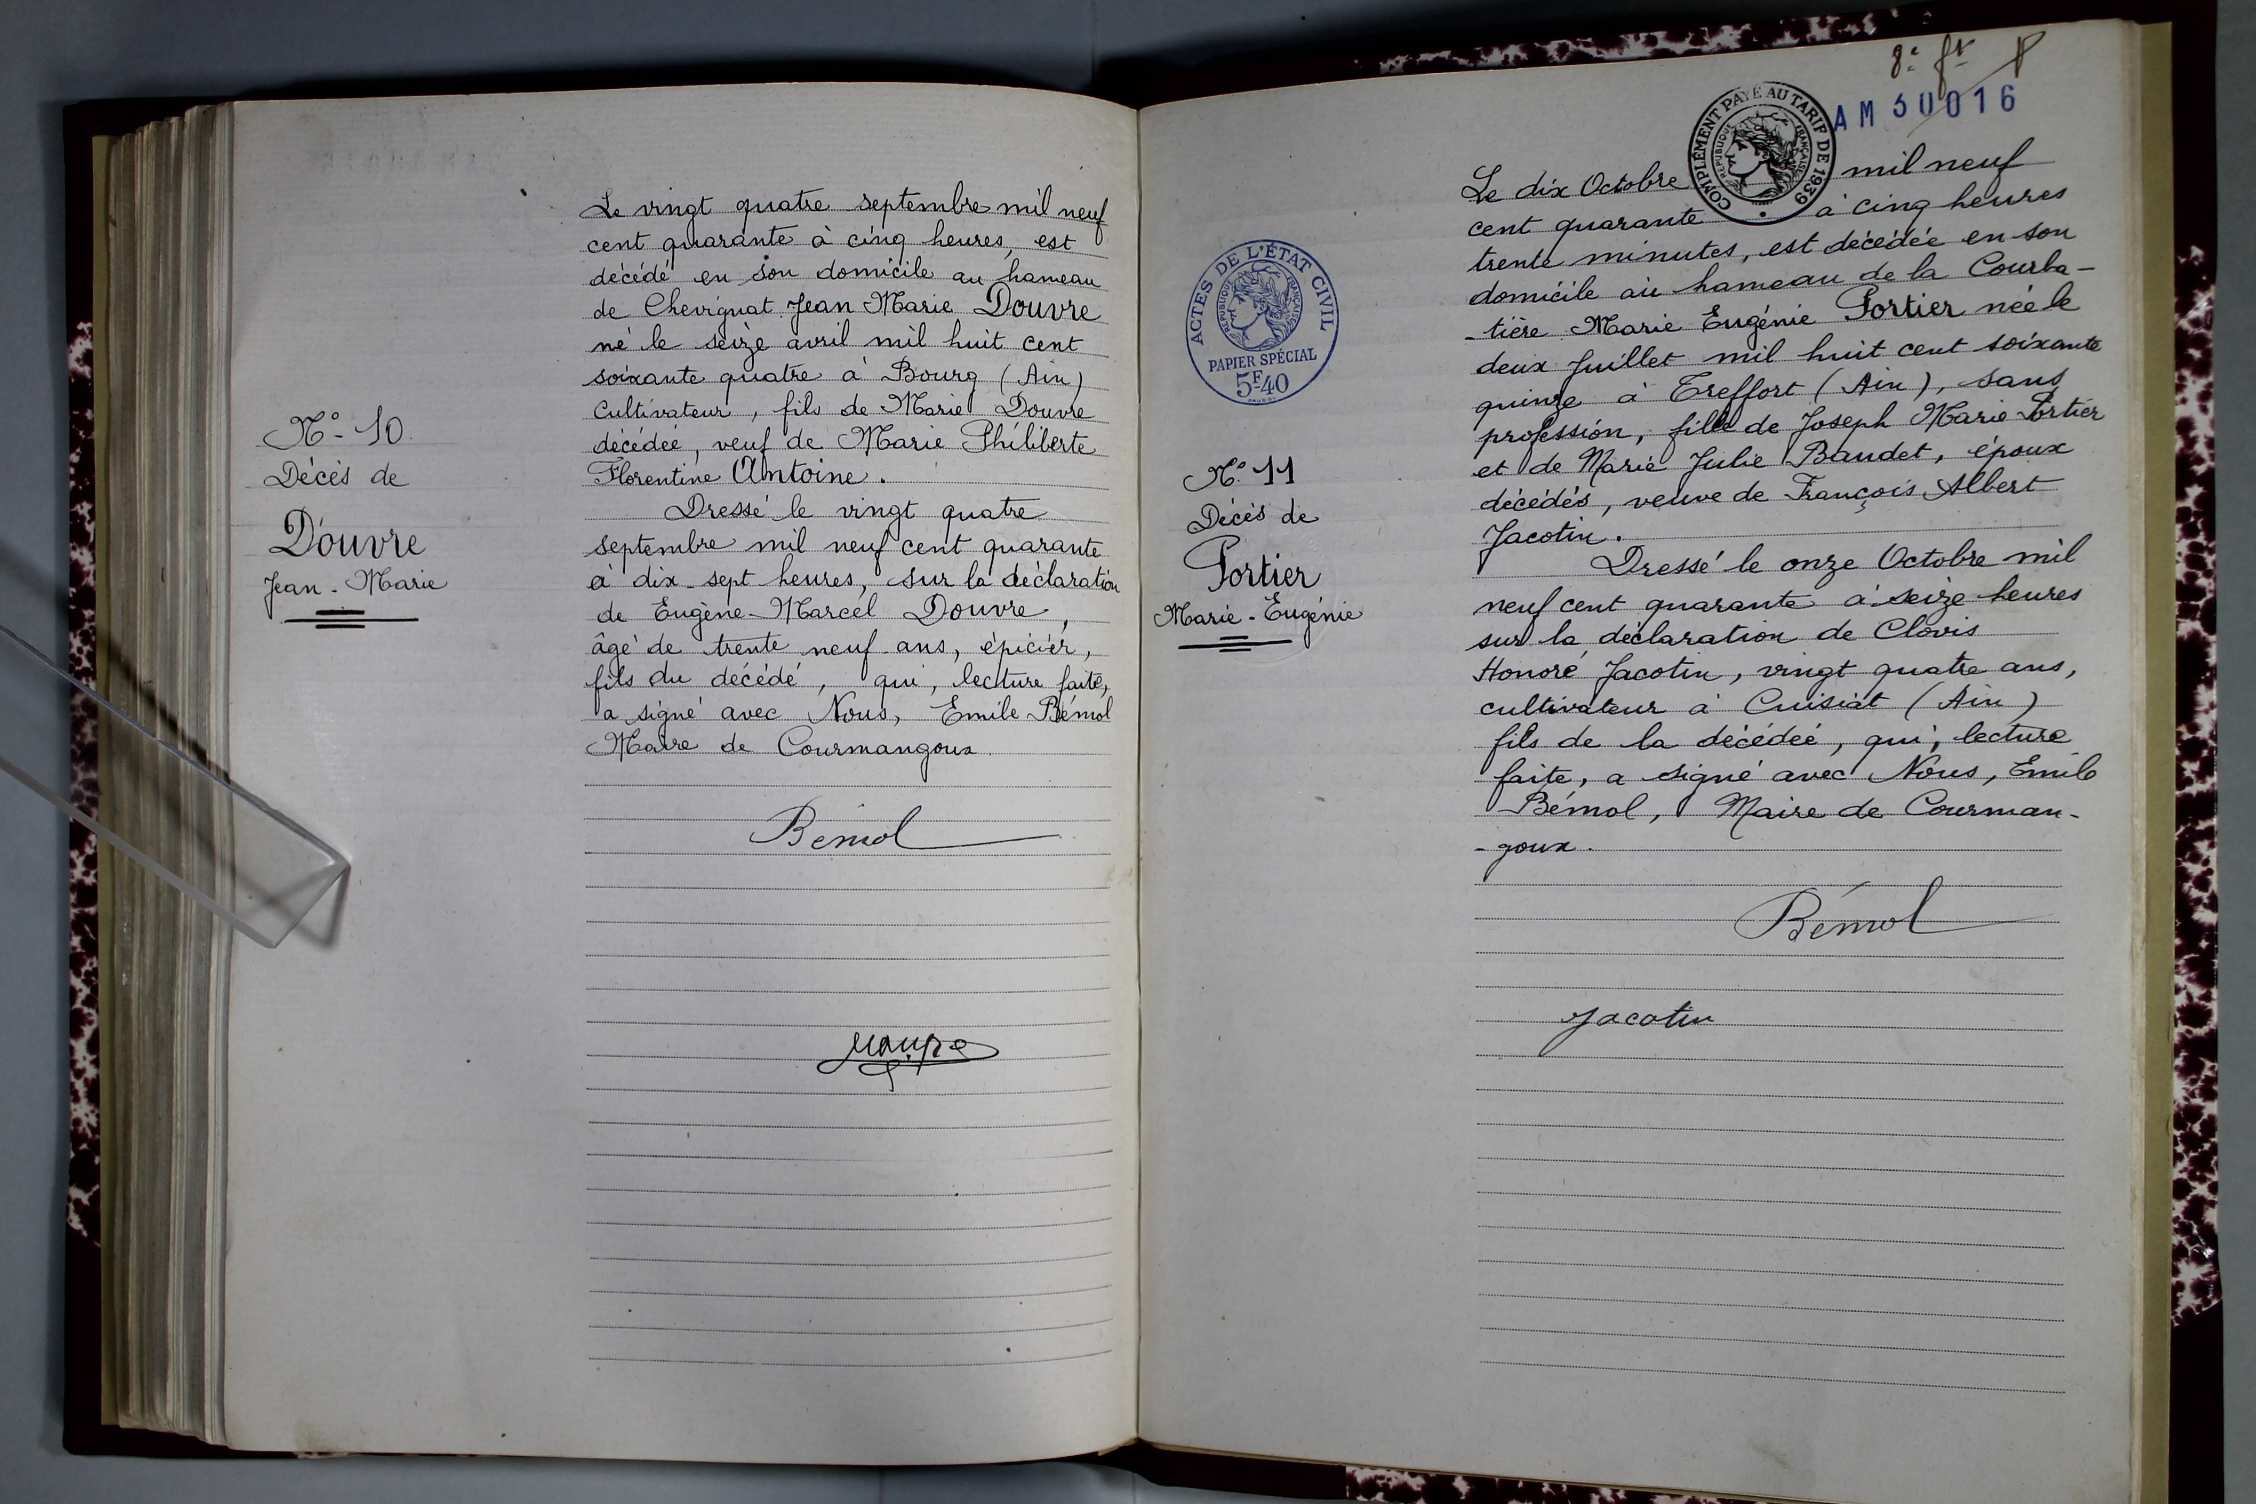 N° 10
Décès de
Douvre
Jean-Marie
Le vingt quatre septembre mil neuf
cent quarante à cinq heures, est
décédé en son domicile au hameau
de Chevignat Jean Marie Douvre
né le seize avril mil huit cent
soixante quatre à Bourg (Ain)
cultivateur, fils de Marie Douvre
décédée, veuf de Marie Philiberte
Florentine Antoine.
Dressé le vingt quatre
septembre mil neuf cent quarante
à dix-sept heures, sur la déclaration
de Eugène-Marcel Douvre,
âgé de trente neuf ans, épicier,
fils du décédé, qui, lecture faite,
a signé avec Nous, Emile Bémol
Maire de Courmangoux
Bemol
8e ft
AM 30016
COMPLÉMENT PAYÉ AU TARIF DE 1939
RÉPUBLIQUE FRANÇAISE
ACTES DE L'ÉTAT CIVIL
RÉPUBLIQUE FRANÇAISE
PAPIER SPÉCIAL
5F40
N° 11
Décès de
Portier
Marie-Eugénie
Le dix Octobre mil neuf
cent quarante à cinq heures
trente minutes, est décédée en son
domicile au hameau de la Courba-
-tière Marie Eugénie Portier née le
deux Juillet mil huit cent soixante
quinze à Treffort (Ain), sans
profession, fille de Joseph Marie Portier
et de Marie Julie Baudet, époux
décédés, veuve de François Albert
Jacotin.
Dressé le onze Octobre mil
neuf cent quarante à seize heures
sur la déclaration de Clovis
Honoré Jacotin, vingt quatre ans,
cultivateur à Cuisiat (Ain)
fils de la décédée, qui, lecture
faite, a signé avec Nous, Emile
Bémol, Maire de Courman-
-goux.
Bémol
Jacotin